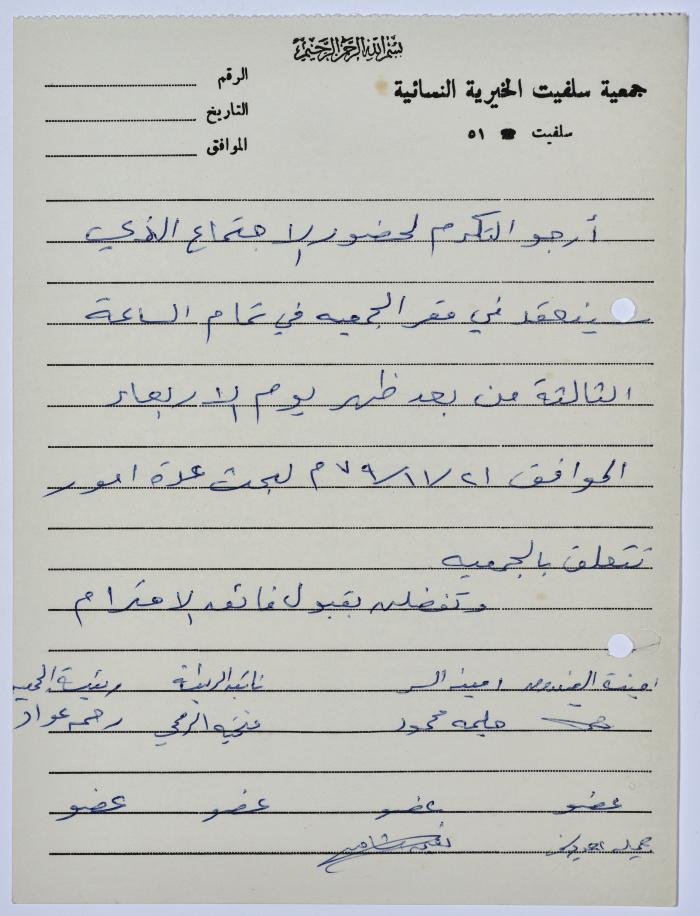 بسم الله الرحمن الرحيم
جمعية سلفيت الخيرية النسائية
سلفيت ☎ ٥١
الرقم
التاريخ
الموافق
أرجو التكرم لحضور الاجتماع الذي
سينعقد في مقر الجمعيه في تمام الساعة
الثالثة من بعد ظهر يوم الاربعاء
الموافق ٢١/١١/٧٩م لبحث عدة امور
تتعلق بالجمعيه
وتفضلن بقبول فائق الاحترام
امينة الصندوق امينة السر نائبة الرئيسة رئيسة الجمعيه
حليمه محمود فتحيه الزعبي رحمه عواد
عضو عضو عضو عضو
جميله